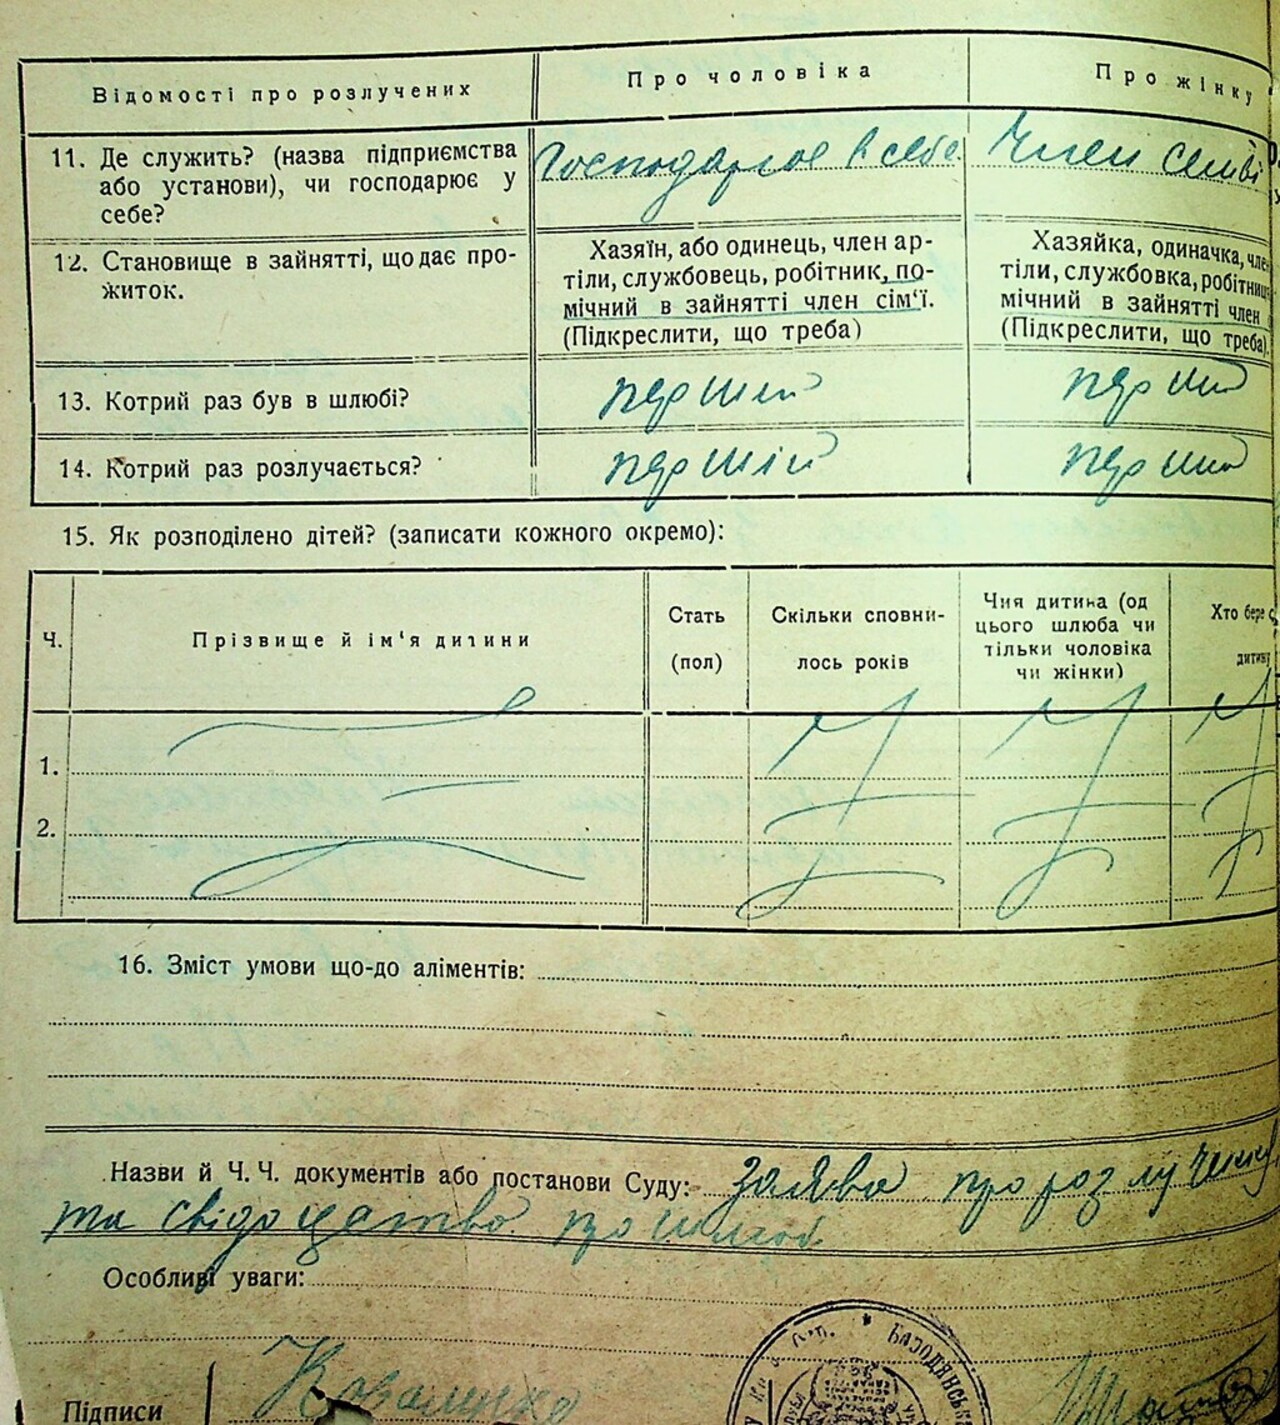 Відомості про розлучених
Про чоловіка
Про жінку
11. Де служить? (назва підприємства
або установи), чи господарює у
себе?
Господарює в себе
Член семьї
12. Становище в зайнятті, що дає про-
житок.
Хазяїн, або одинець, член ар-
тіли, службовець, робітник, по-
мічний в зайнятті член сім'ї.
(Підкреслити, що треба)
Хазяйка, одиначка, чле
тіли, службовка, робітниц
мічний в зайнятті член
(Підкреслити, що треба).
13. Котрий раз був в шлюбі?
перший
перший
14. Котрий раз розлучається?
перший
перший
15. Як розподілено дітей? (записати кожного окремо):
Ч.
Прізвище й ім'я дитини
Стать
(пол)
Скільки сповни-
лось років
Чия дитина (од
цього шлюба чи
тільки чоловіка
чи жінки)
Хто бере с
дитину
1.
2.
16. Зміст умови що-до аліментів:
Назви й Ч. Ч. документів або постанови Суду: заява про розлучення
та свідоцтво про шлюб
Особливі уваги:
Підписи
Коваленко